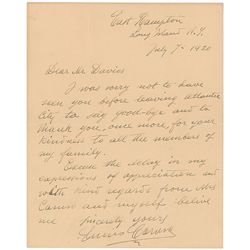 East Hampton
Long Island N.Y.
July 7th 1920
Dear Mr Davies
I was sorry not to have
seen you before leaving Atlantic
City to say good-bye and to
thank you, once more, for your
kindness to all the members of
my family.
Excuse the delay in my
expressions of appreciation and
with kind regards from Mrs
Caruso and myself believe
me
sincerely yours
Enrico Caruso